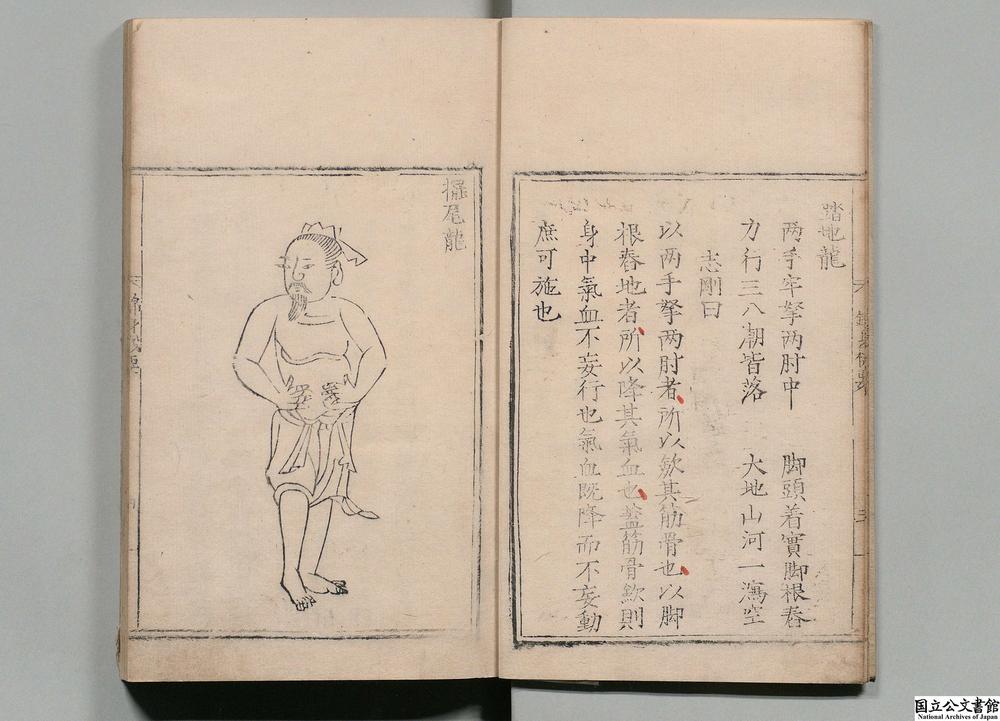 踏地龍
两手牢拏两肘中 脚頭着實脚根舂
力行三八潮皆落 大地山河一瀉空
志剛曰
以两手拏两肘者所以歛其筋骨也以脚
根舂地者所以降其氣血也盖筋骨歛則
身中氣血不妄行也氣血既降而不妄動
庶可施也
擺尾龍
国立公文書館
National Archives of Japan